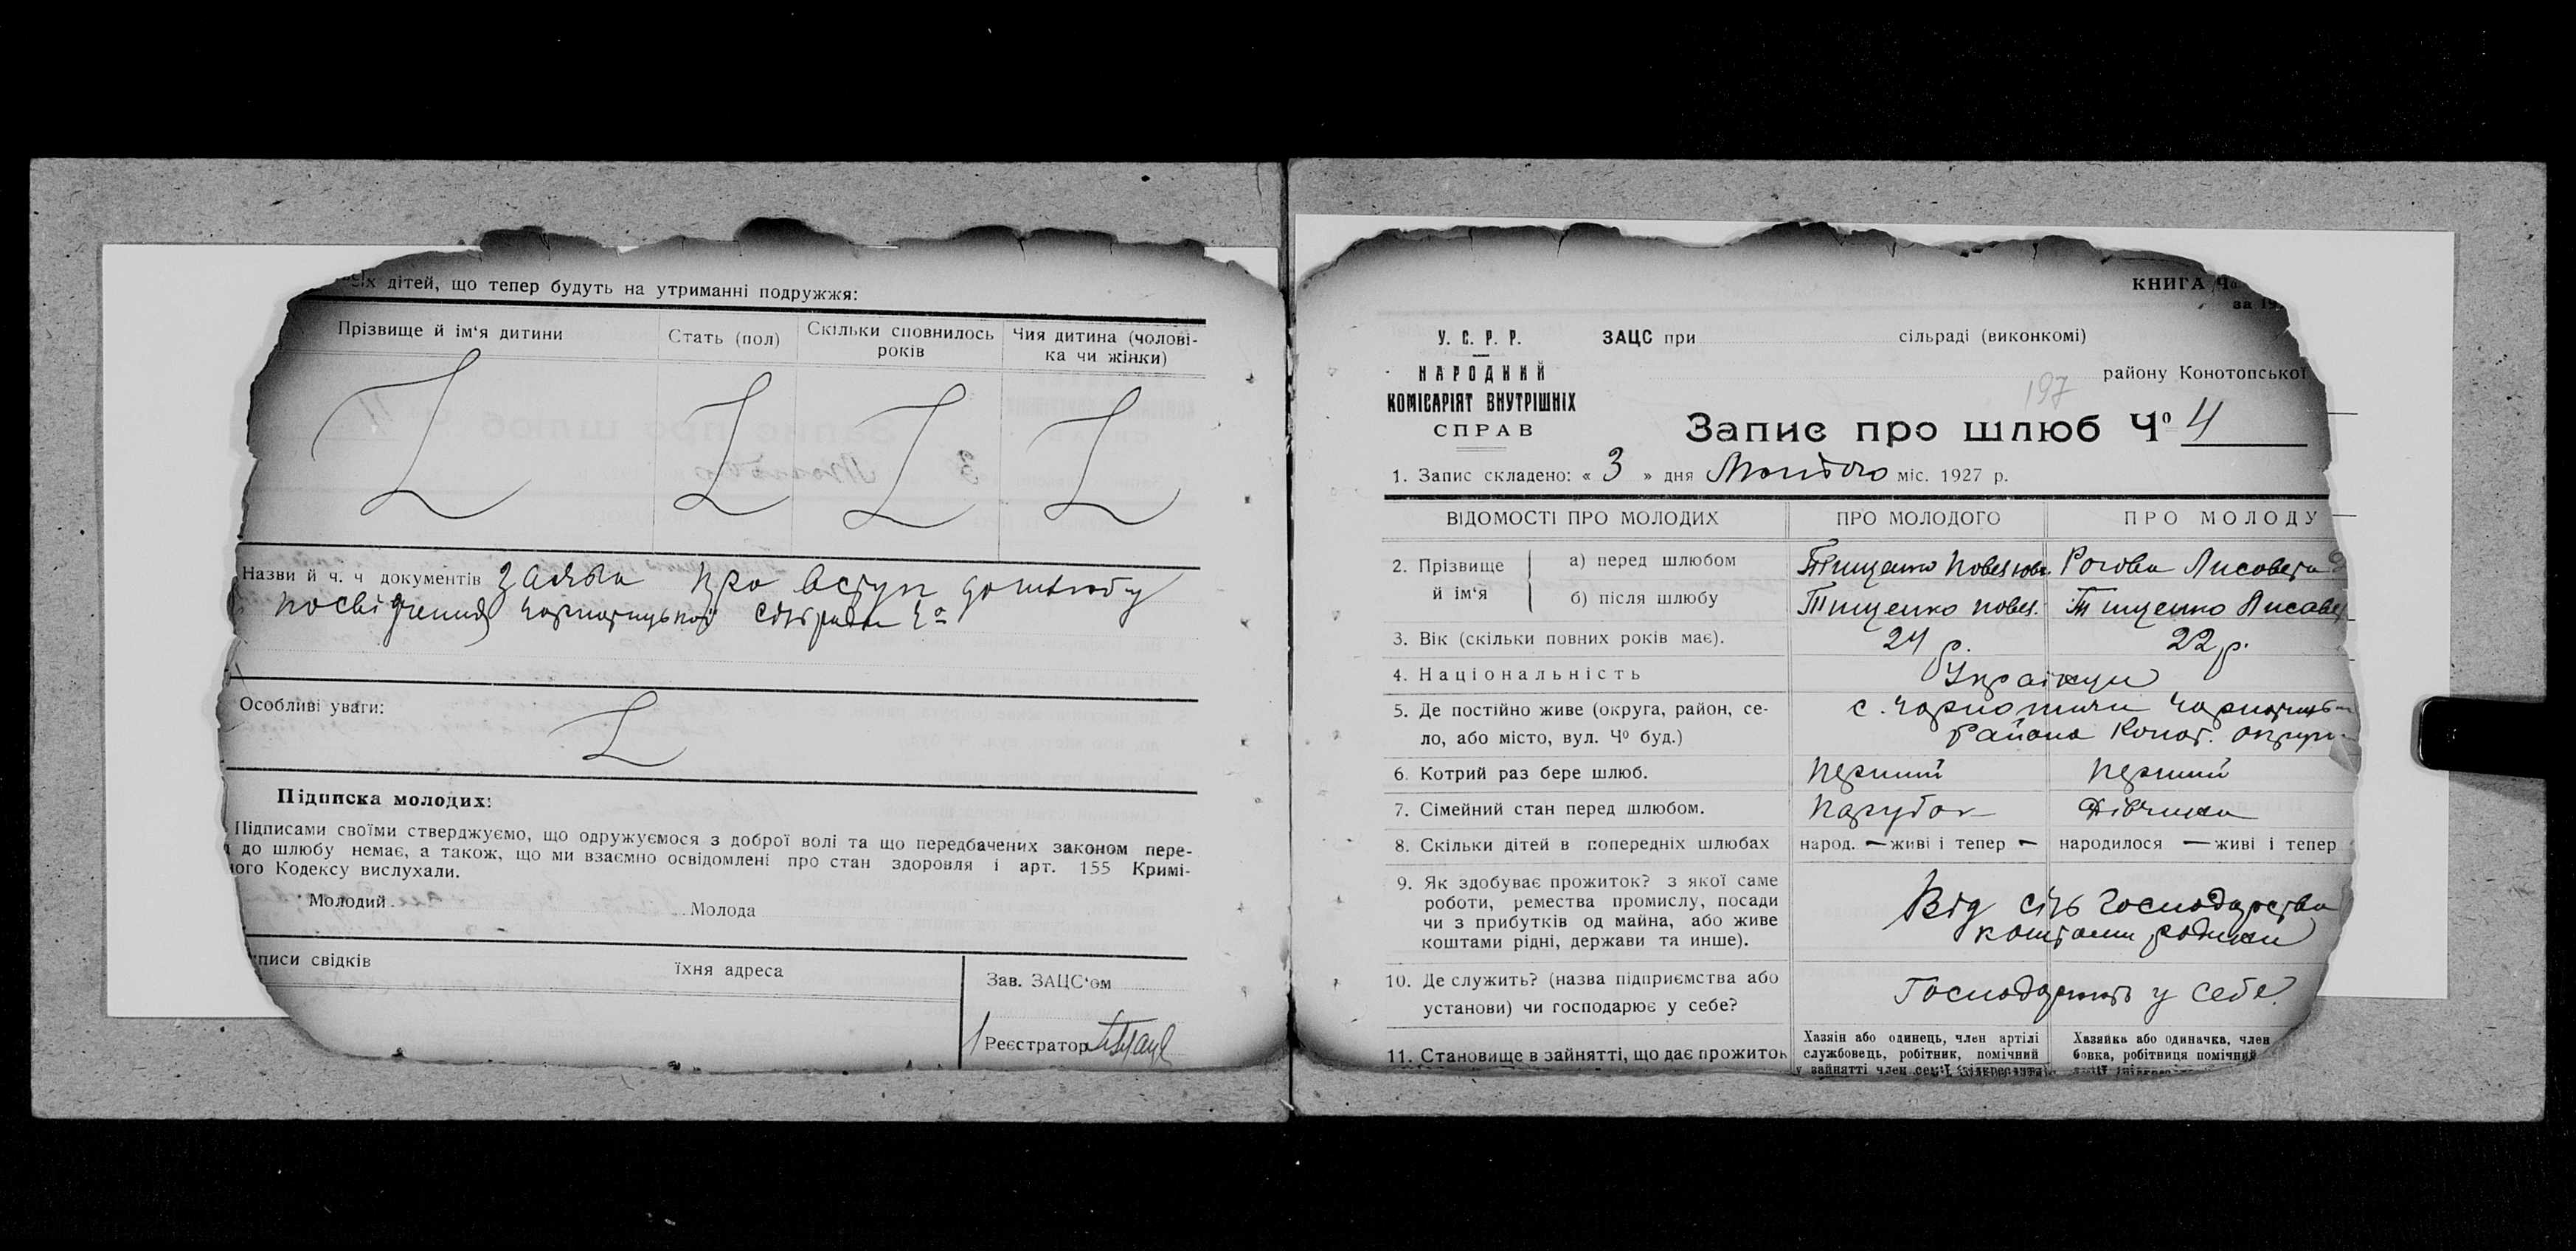 їх дітей, що тепер будуть на утриманні подружжя:
Прізвище й ім'я дитини
Стать (пол)
Скільки сповнилось
років
Чия дитина (чолові-
ка чи жінки)
Назви й ч. ч документів заява про вступ до шлюбу
посвідчення сільради Чº
Особливі уваги:
Підписка молодих:
Підписами своїми стверджуємо, що одружуємося з доброї волі та що передбачених законом пере-
до шлюбу немає, а також, що ми взаємно освідомлені про стан здоровля і арт. 155 Кримі-
ного Кодексу вислухали.
Молодий
Молода
писи свідків
їхня адреса
Зав. ЗАЦС'ом
Реєстратор
КНИГА Чо
за 19
У. С. Р. Р.
НАРОДНИЙ
КОМІСАРІЯТ ВНУТРІШНІХ
СПРАВ
ЗАЦС при сільраді (виконкомі)
району Конотопської
197
Запис про шлюб Чº 4
1. Запис складено: « 3 » дня Лютого міс. 1927 р.
ВІДОМОСТІ ПРО МОЛОДИХ
ПРО МОЛОДОГО
ПРО МОЛОДУ
2. Прізвище й ім'я
а) перед шлюбом Тищенко Рогова Лисовета
б) після шлюбу Тищенко Тищенко Лисаве
3. Вік (скільки повних років має). 24 р. 22 р.
4. Національність Українци
5. Де постійно живе (округа, район, се-
ло, або місто, вул. Чº буд.)
с.
района Конот. округи
6. Котрий раз бере шлюб. перший перший
7. Сімейний стан перед шлюбом. парубок Дівчина
8. Скільки дітей в попередніх шлюбах народ. — живі і тепер — народилося — живі і тепер
9. Як здобуває прожиток? з якої саме
роботи, ремества промислу, посади
чи з прибутків од майна, або живе
коштами рідні, держави та инше).
Від сіль господарства
коштами родини
10. Де служить? (назва підприємства або
установи) чи господарює у себе?
Господарюють у себе
11. Становище в зайнятті, що дає прожиток
Хазяін або одинець, член артілі
службовець, робітник, помічний
у зайнятті член сем'ї (підкреслити)
Хазяйка або одиначка, член
бовка, робітниця помічний